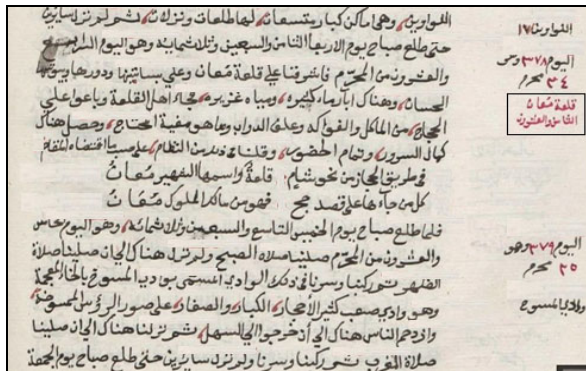 اللواوين، وهي اماكن كبار متسعات، لها طلعات ونزلات، ثم لم نزل سايرين
حتى طلع صباح يوم الاربعا الثامن والسبعين وثلاثمايه وهو اليوم الرابع
والعشرون من المحرم فاشرفنا على قلعة معان وعلى بساتينها ودورها وبيوتها
الحسان، وهناك آبار ماء كثيره، ومياه غزيره، فجاء اهل القلعة وباعوا على
الحجاج، من الماكل والفواكه وعلف الدواب وما هو مفية المحتاج، وحصل هناك
كمال السرور، وتمام الحضور، وقلنا في ذلك من النظام، على حسب اقتضاء المقام
في طريق الحجاز من نحو شام قلعة واسمها الشهير معان
كل من جاءها على قصد حج فهو من مالك الملوك معان
فلما طلع صباح يوم الخميس التاسع والسبعين وثلاثمائه، وهو اليوم الخامس
والعشرون من المحرم صلينا صلاة الصبح ولم نزل هناك الى ان صلينا صلاة
الظهر ثم ركبنا وسرنا في ذلك الوادي المسمى بوادي المسوخ بالخاء المعجمة
وهو وادي صعب كثير الاحجار، الكبار والصغار، على صور الرؤس الممسوخة،
وازدحم الناس هناك الى أن خرجوا الى السهل، ثم نزلنا هناك الى ان صلينا
صلاة المغرب ثم ركبنا وسرنا ولم نزل سايرين حتى طلع صباح يوم الجمعة
اللواوين ١٧
اليوم ٣٧٨ وهو
٢٤ محرم
قلعة معان
الثامن والعشرون
اليوم ٣٧٩ وهو
٢٥ محرم
وادي المسوخ